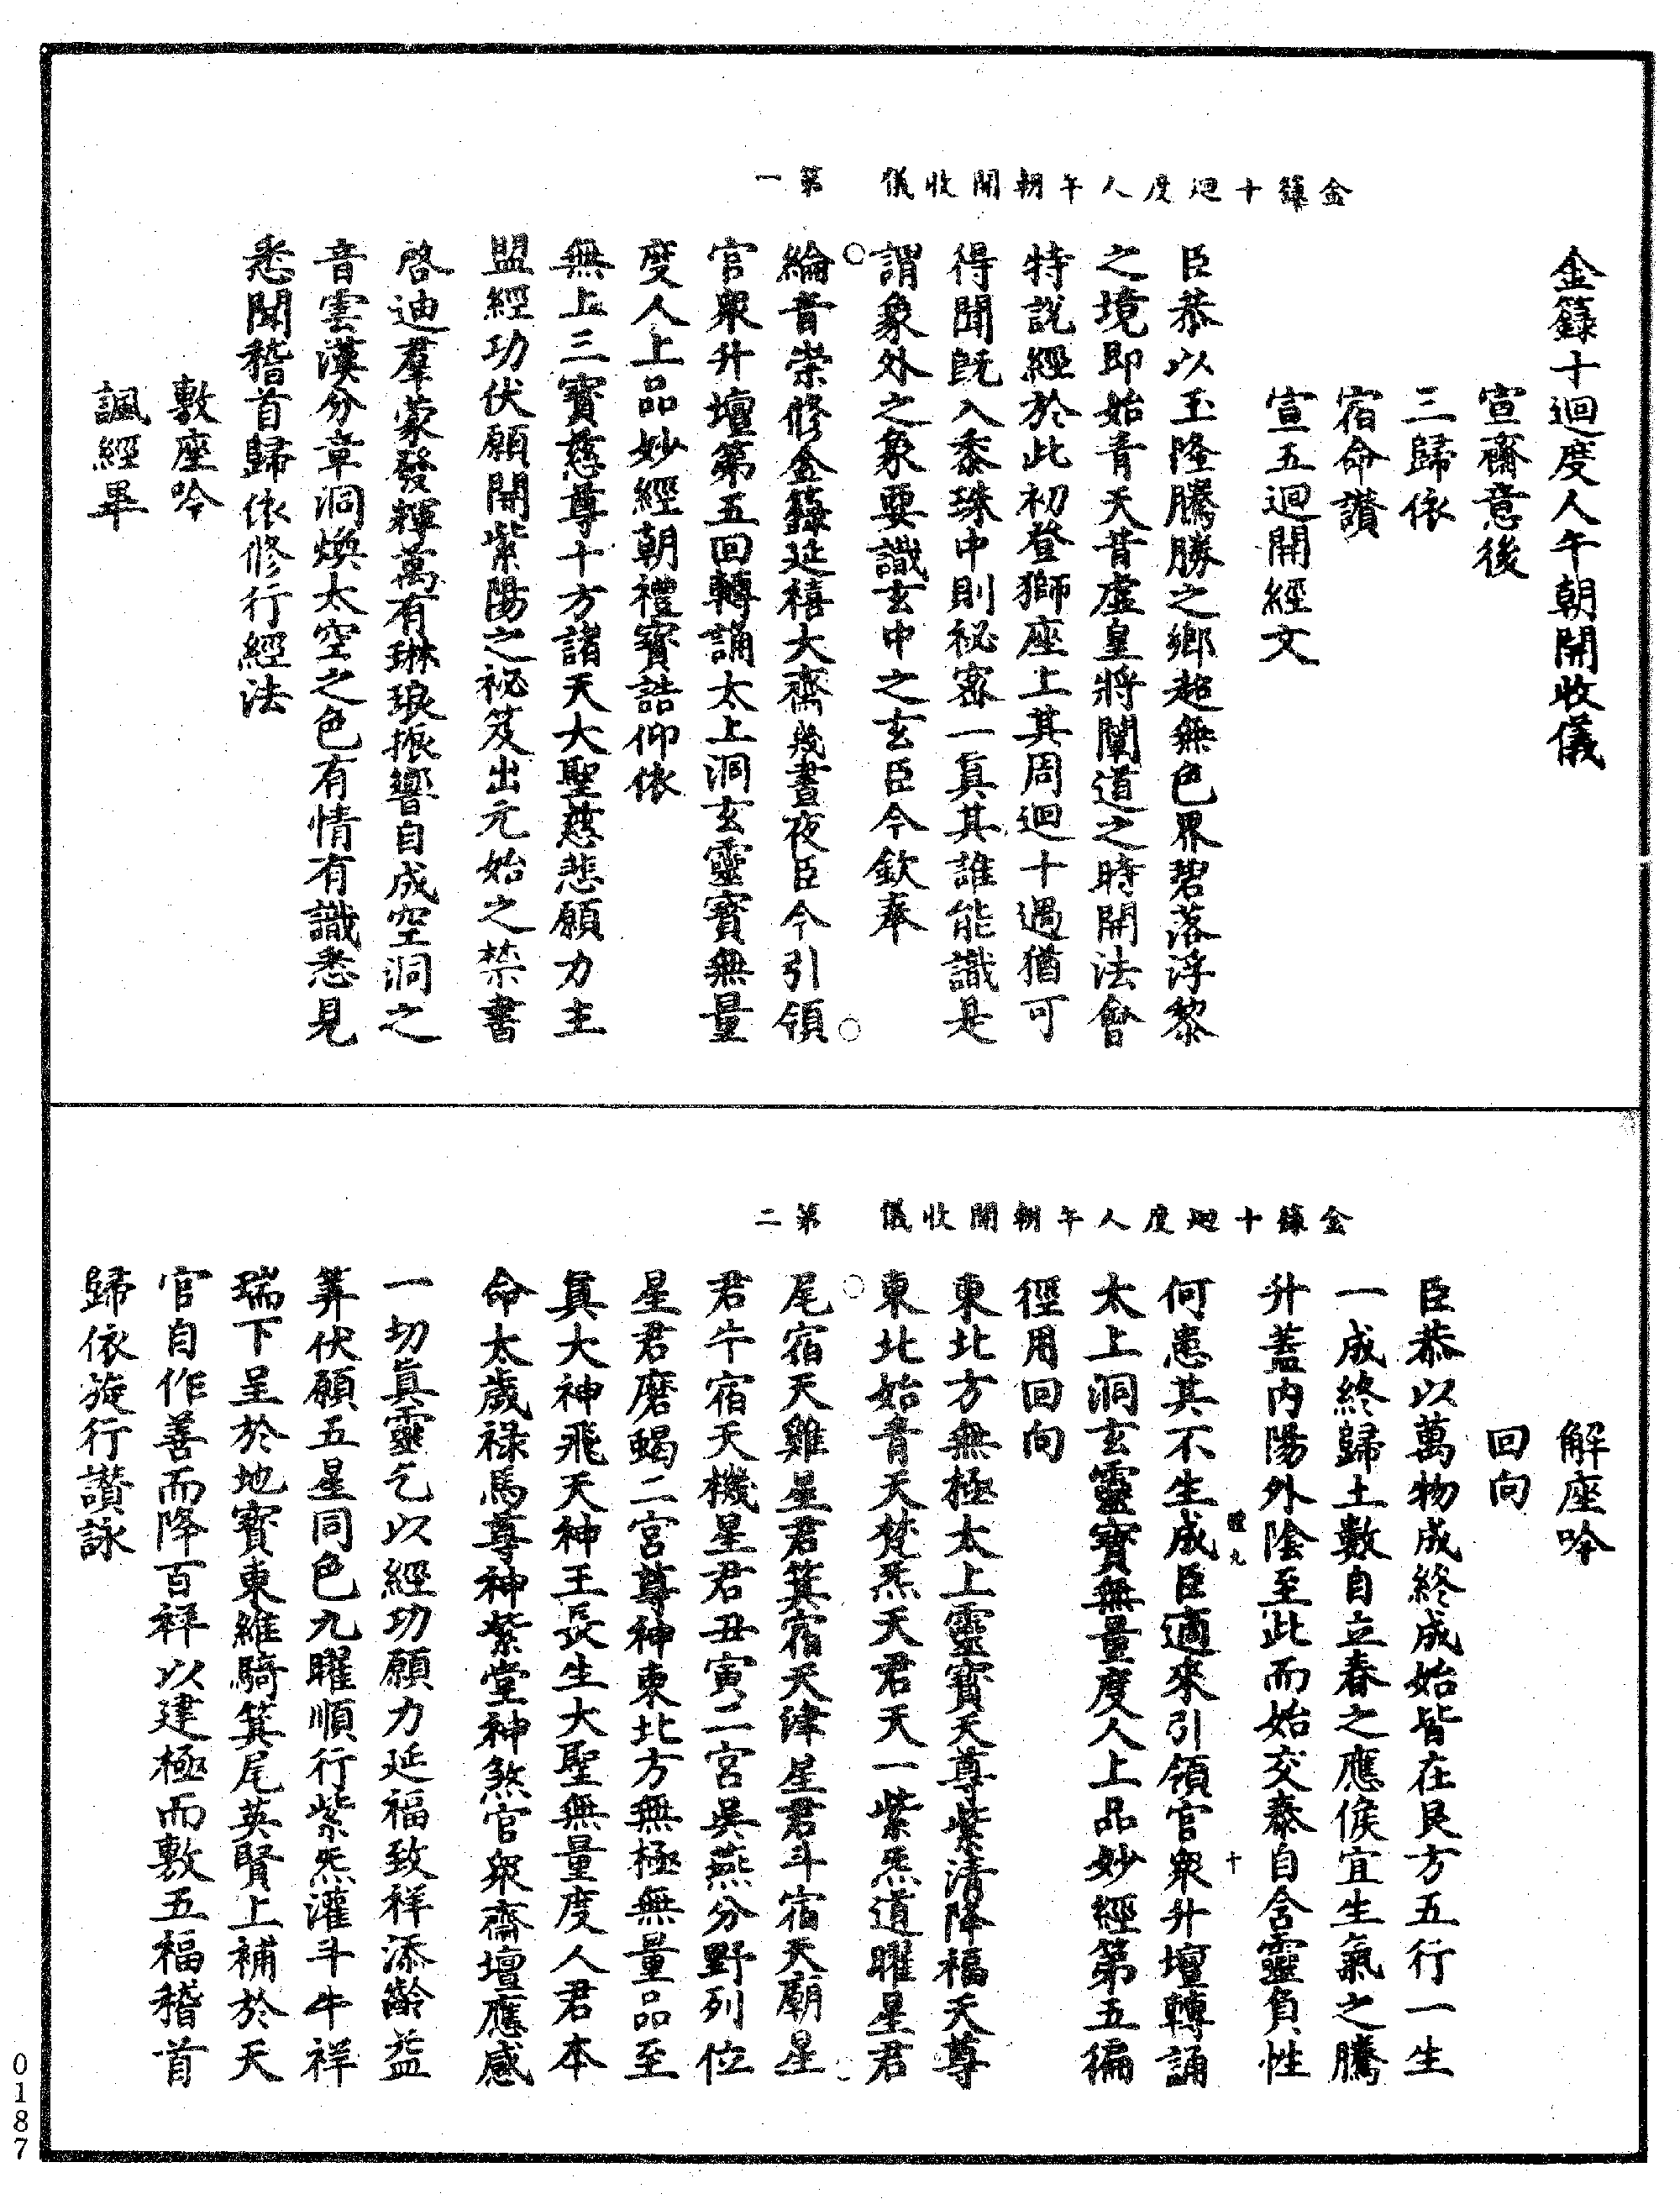 金籙十迴度人午朝開收儀
宣齋意後
三歸依
宿命讚
宣五迴開經文
臣恭以玉隆騰勝之鄉超無色界碧落浮黎
之境即始青天昔虛皇將闡道之時開法會
特說經於此初登獅座上其周迴十過猶可
得聞既入黍珠中則祕密一真其誰能識是
謂象外之象要識玄中之玄臣今欽奉
綸音崇修金籙延禧大齋幾晝夜臣今引領
官眾升壇第五回轉誦太上洞玄靈寶無量
度人上品妙經朝禮寶誥仰依
無上三寶慈尊十方諸天大聖慈悲願力主
盟經功伏願開紫陽之祕笈出元始之禁書
啓迪羣蒙發輝萬有琳琅振響自成空洞之
音雲漢分章洞煥太空之色有情有識悉見
悉聞稽首歸依修行經法
敷座吟
諷經畢
金籙十迴度人午朝開收儀 第一
解座吟
回向
臣恭以萬物成終成始皆在艮方五行一生
一成終歸土數自立春之應候宜生氣之騰
升蓋內陽外陰至此而始交泰自含靈負性
何患其不生成臣適來引領官眾升壇轉誦
太上洞玄靈寶無量度人上品妙經第五徧
徑用回向
東北方無極太上靈寶天尊紫清降福天尊
東北始青天梵炁天君天一紫炁道曜星君
尾宿天雞星君箕宿天津星君斗宿天廟星
君牛宿天機星君丑寅二宮吳燕分野列位
星君磨蝎二宮尊神東北方無極無量品至
真大神飛天神王長生大聖無量度人君本
命太歲祿馬尊神紫堂神煞官眾齋壇應感
一切真靈乞以經功願力延福致祥添齡益
筭伏願五星同色九曜順行紫炁灌斗牛祥
瑞下呈於地寶東維騎箕尾英賢上補於天
官自作善而降百祥以建極而敷五福稽首
歸依旋行讚詠
金籙十迴度人午朝開收儀 第二
九
十
0187